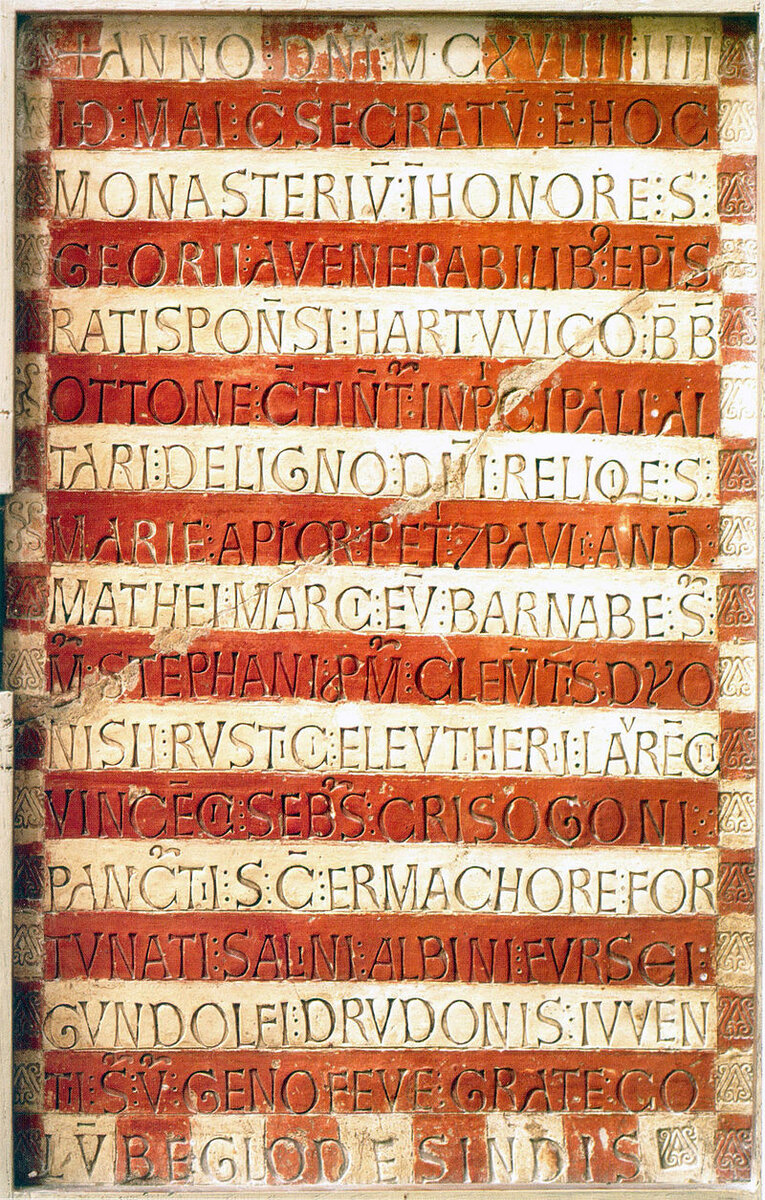 +ANNO : DN̄I : M · C XVIIII · IIII
IĐ : MAI : C̄SECRATV̄ : Ē · HOC
MONASTERIV̄ : Ī HONORE : S :
GEORII : A VENERABILIBꝰ : EPĪS
RATISPON̄SI : HARTVVICO : B̄B̄
OTTONE : C̄TIN̄T̄ : IN PͥCIPALI : AL
TARI : DE LIGNO : DN̄I : RELIQIE : S :
MARIE : APLOR : PETͥ ⁊ PAVLI : AND̄ :
MATHEI : MARCI : EV̄ : BARNABE : S̄ :
M̄ : STEPHANI : P̄M̄ : CLEM̄TIS : DYO
NISII : RVSTICI : ELEVTHERI : LAVRĒCII
VINCĒCII : SEB̄S̄ : CRISOGONI :
PANC̄TII : S : C̄ : ERMACHORE : FOR
TVNATI : SALINI : ALBINI : FVRSEI :
GVNDOLFI : DRVDONIS : IVVEN
TI : S̄ : V̄ : GENOFEVE : GRATE : CO
LV̄BE GLODESINDIS